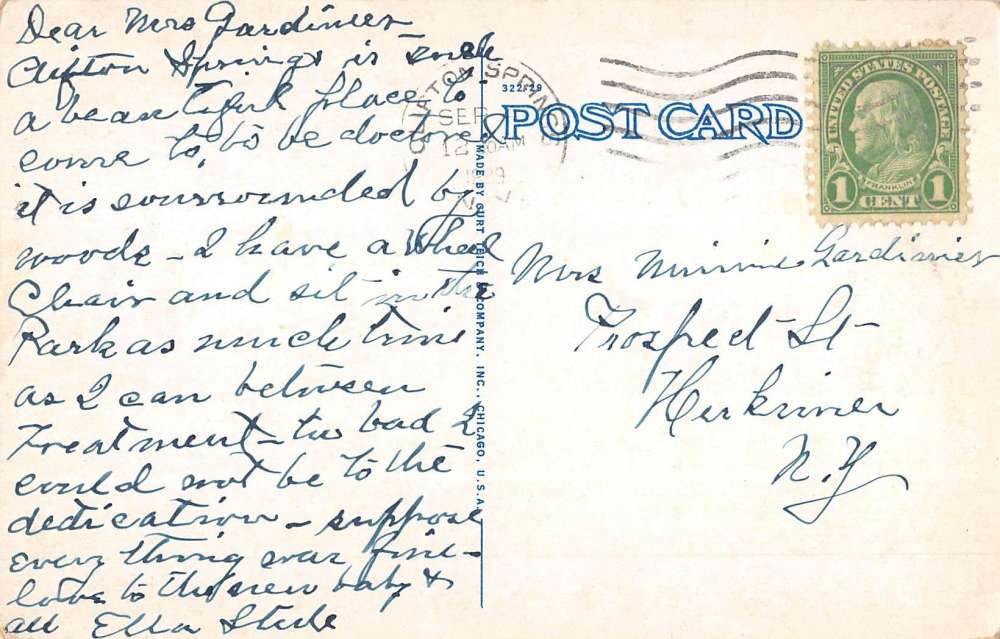 Dear Mrs Gardinier -
Clifton Springs is such
a beautiful place to
come to, to be doctored
it is sourrounded by
woods - I have a Wheel
Chair and sit in the
Park as much time
as I can between
Treatment - too bad I
could not be to the
dedication - suppose
every thing was fine -
love to the new baby &
all Ella Steele
322-29
POST CARD
MADE BY CURT TEICH & COMPANY, INC., CHICAGO, U.S.A.
SPRINGS
SEP
AM
N.Y.
UNITED STATES POSTAGE
FRANKLIN
1 CENT 1
Mrs Minnie Gardinier
Prospect St
Herkimer
N.Y